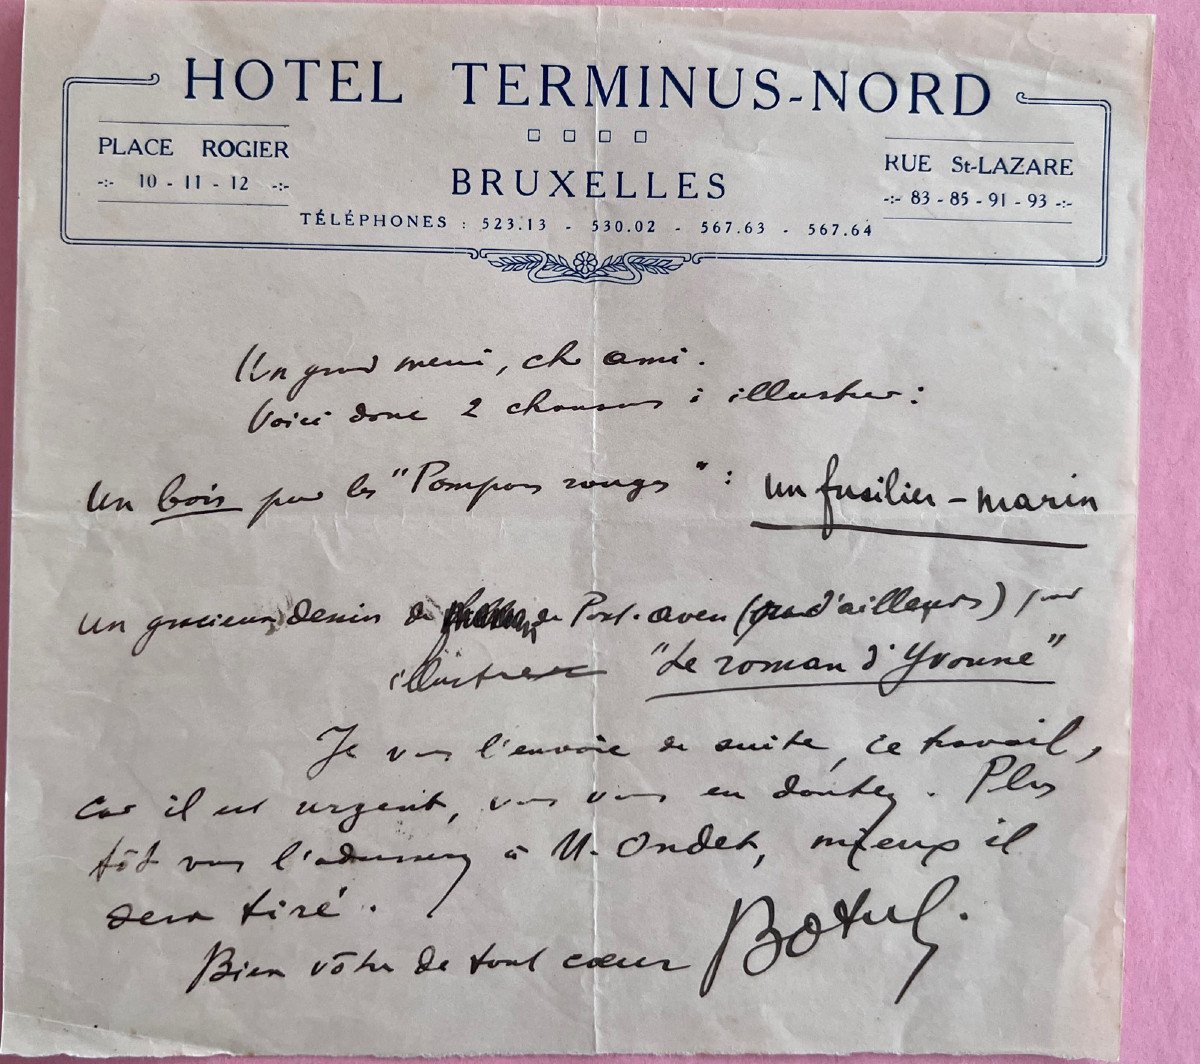 HOTEL TERMINUS-NORD
PLACE ROGIER
-:- 10 - 11 - 12 -:-
BRUXELLES
RUE St-LAZARE
-:- 83 - 85 - 91 - 93 -:-
TÉLÉPHONES : 523.13 - 530.02 - 567.63 - 567.64
Un grand merci, cher ami.
Voici donc 2 chansons à illustrer :
Un bois pour les "Pompons rouges" : un fusilier-marin
Un gracieux dessin de de Pont-aven (ou d'ailleurs) pour
illustrer "Le roman d'Yvonne"
Je vous l'envoie de suite, ce travail,
car il est urgent, vous vous en doutez. Plus
tôt vous l'adresserez à M. Ondet, mieux il
sera tiré.
Bien vôtre de tout cœur Botrel.